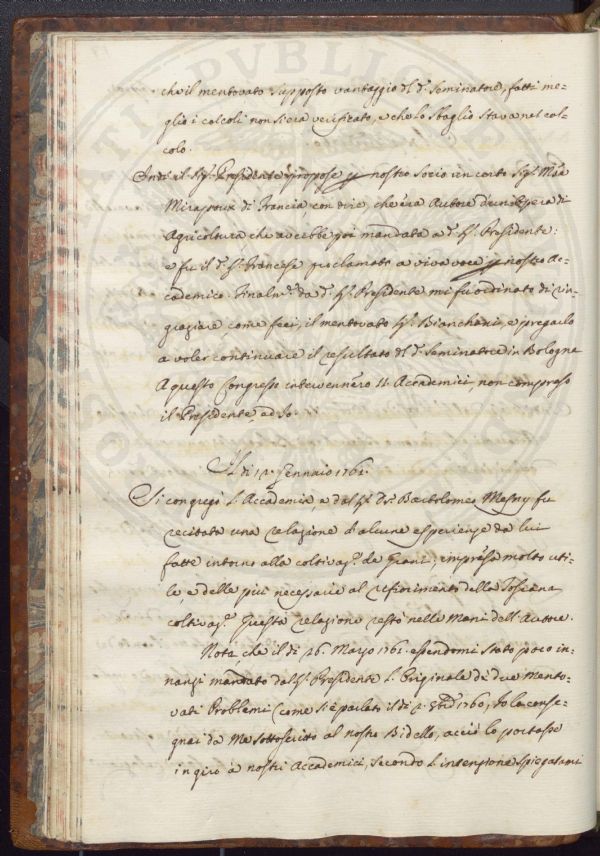 che il mentovato supposto vantaggio dl d.º Seminatore, fatti me=
glio i calcoli non siera verificato, e che lo sbaglio stava nel cal=
colo.
Indi il Sig.r Presidente propose p nostro socio un certo Sig.r
Miraspoux di Francia, con dire, che era Autore d'un Opera di
Agricoltura che avrebbe poi mandata a d.º Sig.r Presidente:
e fu il d.º Sig.r Francese proclamato a viva voce p nostro Ac=
cademico. Finalm.e da d.º Sig.r Presidente mi fu ordinato di rin=
graziare come feci, il mentovato Sig.r Bianchini, e pregarlo
a voler continuare il resultato dl d.º Seminatore in Bologna
A questo Congresso intervennero 11. Accademici, non compreso
il Presidente, ed Io.
Il di Gennaio 1761.
Si congregò l'Accademia, e dal Sig.r D.r Bartolomeo Mesny fu
recitata una relazione di alcune esperienze da lui
fatte intorno alla coltivaz.e de Grani; impresa molto uti=
le, e delle più necessarie al rifiorimento della Toscana
coltivaz.e Questa relazione restò nelle Mani dell'Autore.
Nota, che il di 26. Marzo 1761. essendomi stato poco in=
nanzi mandato dal Sig.r Presidente l'Originale de due mento=
vati Problemi (come si è parlato il di 2. 1760, Io lo conse=
gnai da Me sottoscritto al nostro Bidello, acciò lo portasse
in giro a nostri Accademici, secondo l'intenzione spiegatami